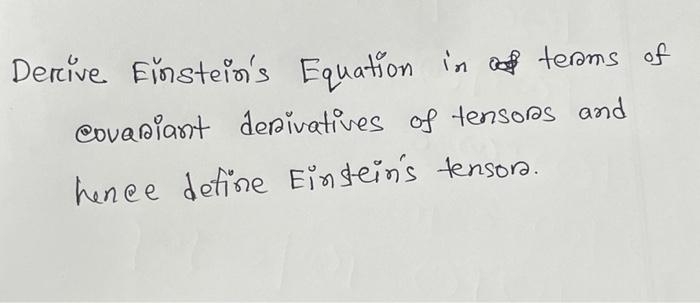 Derive Einstein's Equation in terms of
covariant derivatives of tensors and
hence define Einstein's tensor.